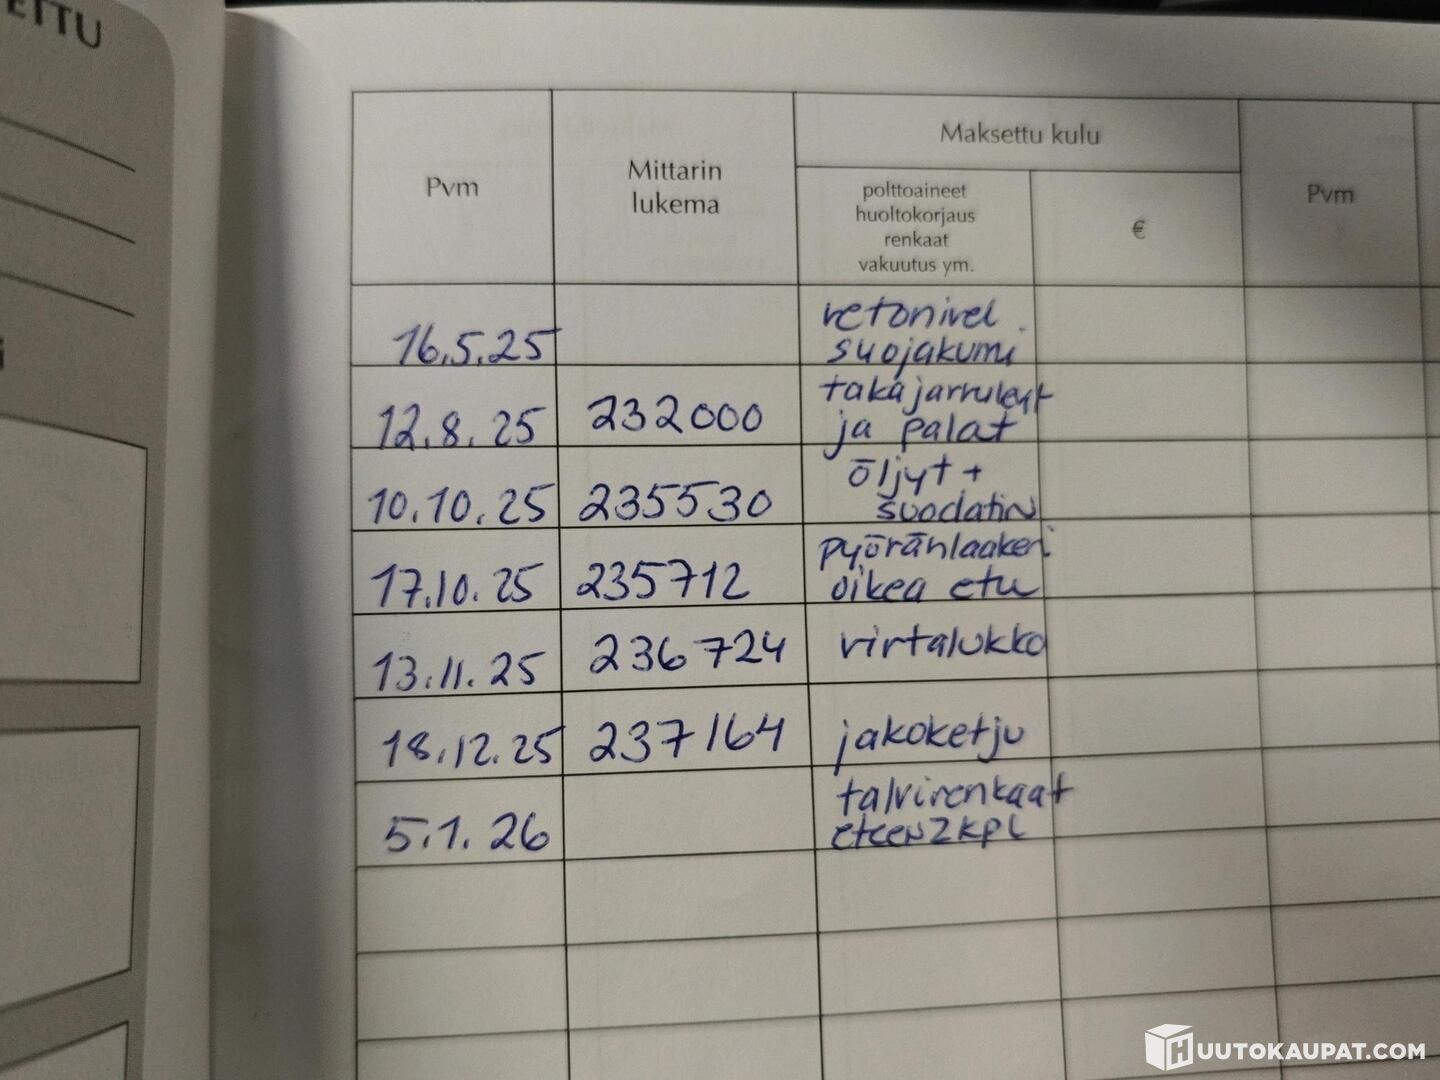 ETTU
Pvm
Mittarin
lukema
Maksettu kulu
polttoaineet
huoltokorjaus
renkaat
vakuutus ym.
€
Pvm
16.5.25 vetonivel
suojakumi
12.8.25 232000 takajarrulevyt
ja palat
10.10.25 235530 öljyt +
suodatin
17.10.25 235712 pyöränlaakeri
oikea etu
13.11.25 236724 virtalukko
18.12.25 237164 jakoketju
5.1.26 talvirenkaat
eteen 2kpl
HUUTOKAUPAT.COM